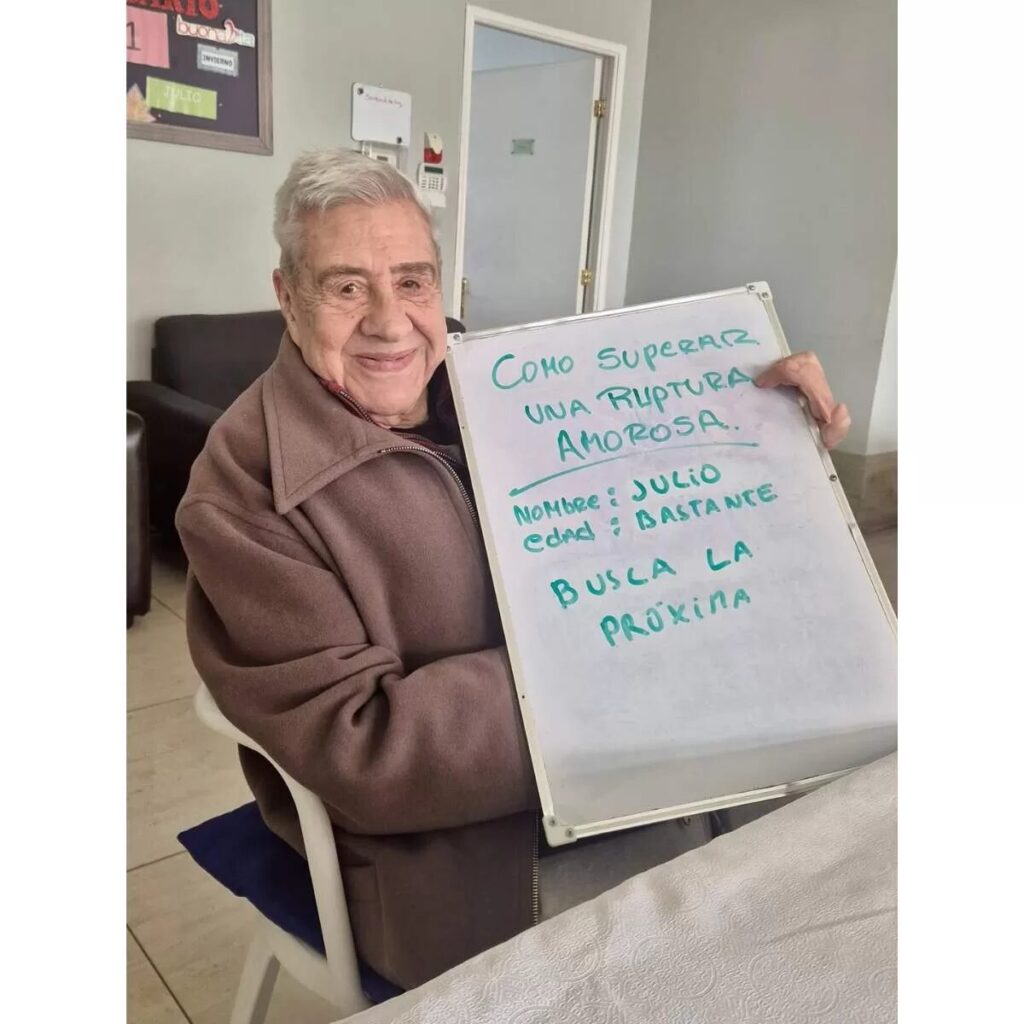 ARIO
1
buona
INVIERNO
JULIO
COMO SUPERAR
UNA RUPTURA
AMOROSA.
NOMBRE: JULIO
edad: BASTANTE
BUSCA LA
PRÓXIMA